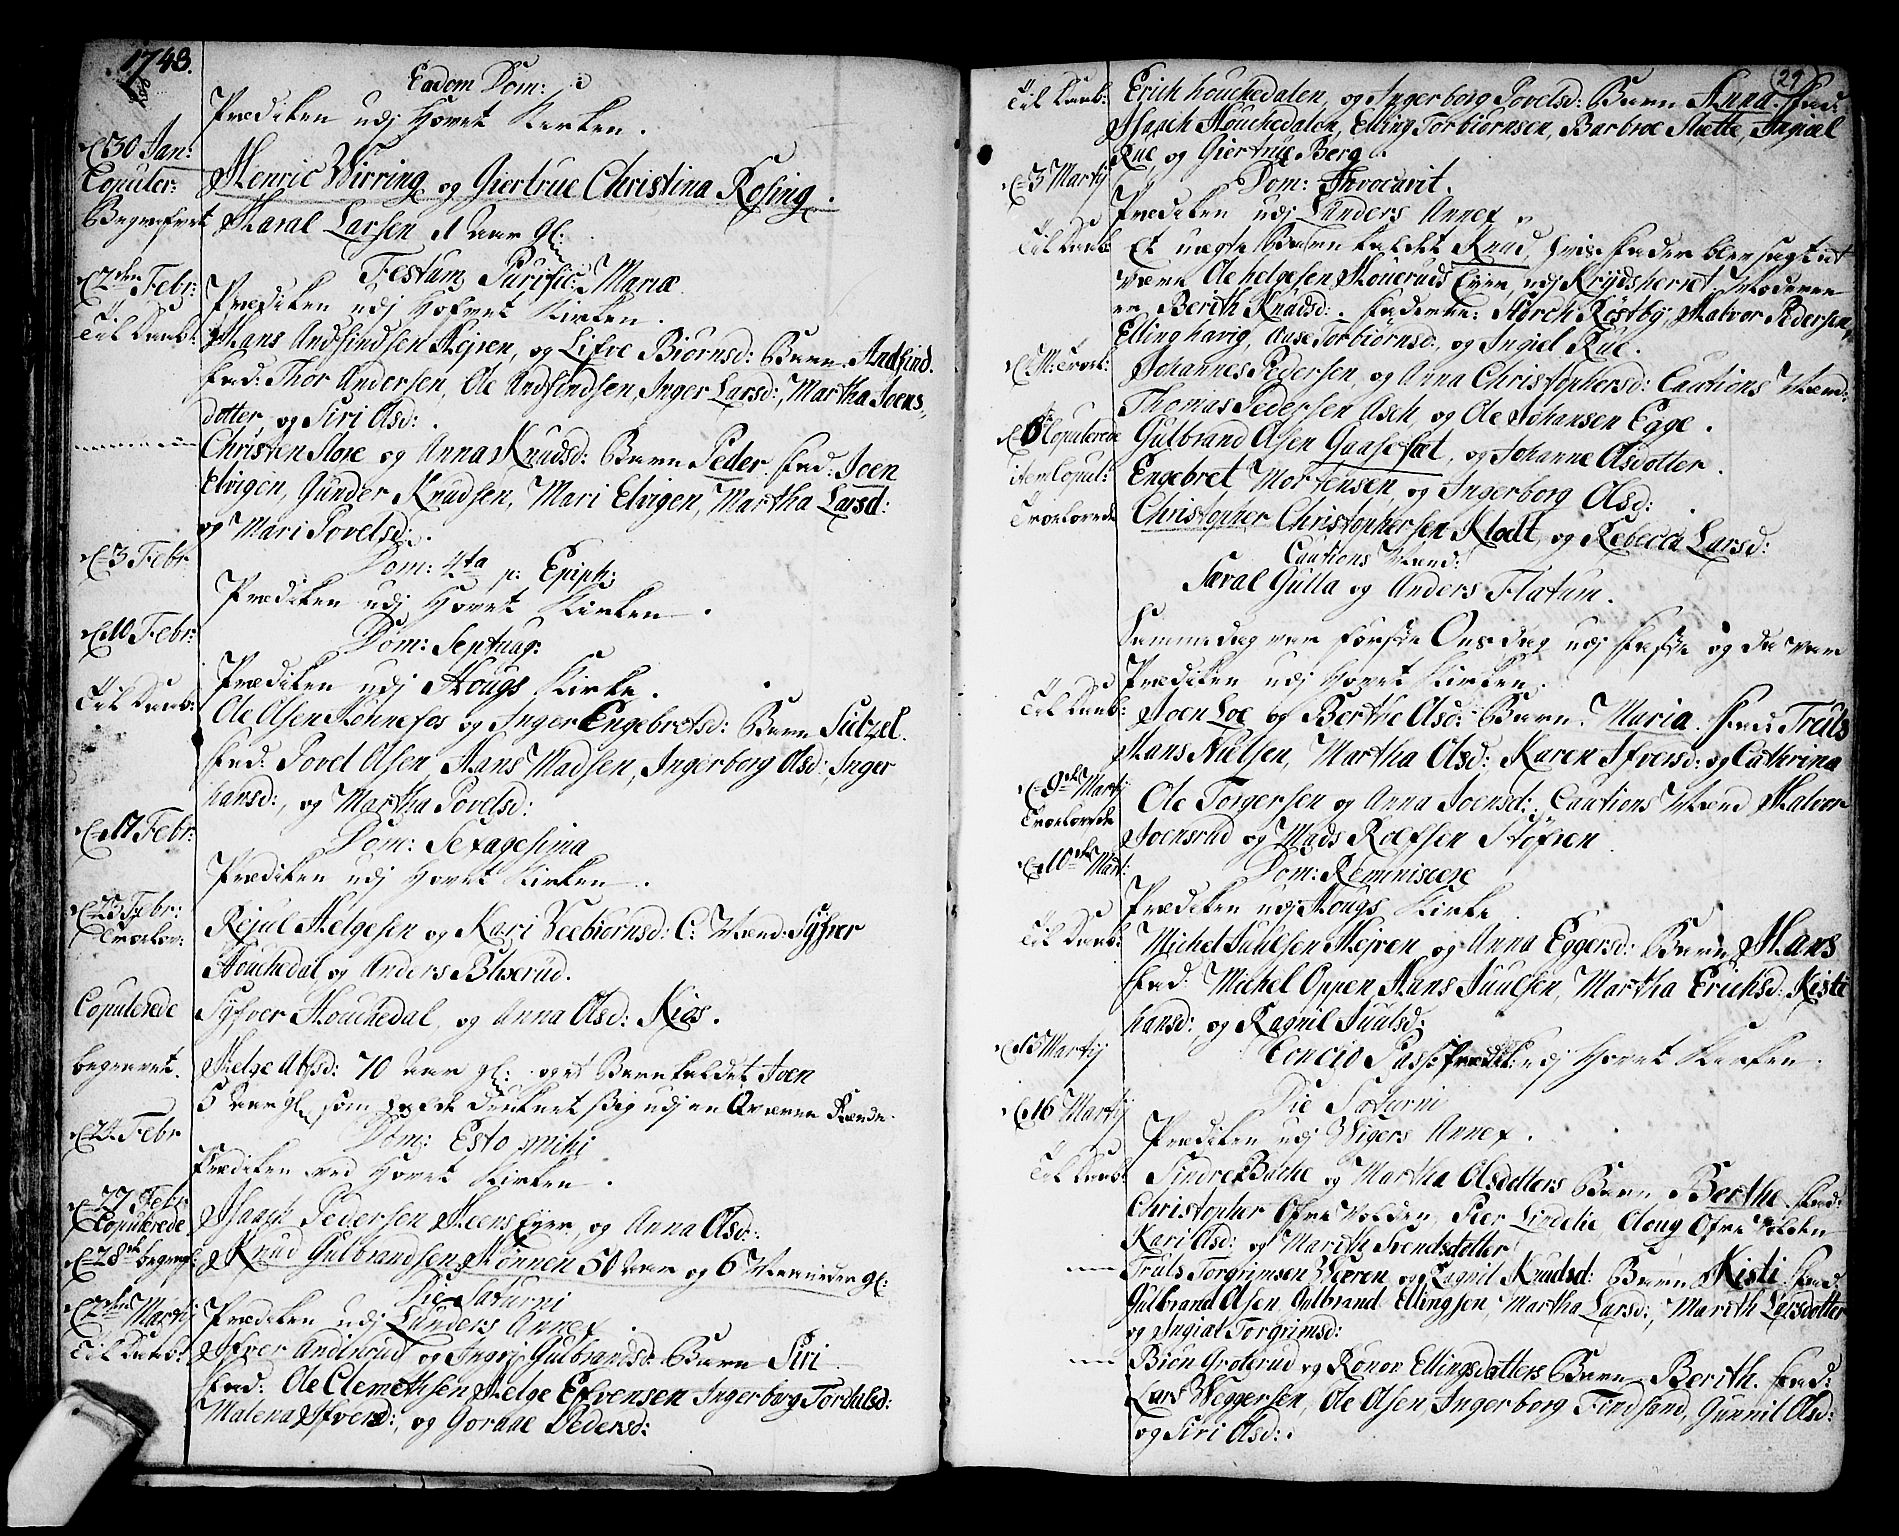 1743.
Eadom Dom:
Prædiken udj Hovet Kirken.
d 30 Jan:
Copuler: Henric Wirring og Giertrue Christina Rosing.
Begrafvet Haral Larsen 1 Aar gl:
d 2den Febr: Festum Purific: Mariæ
Prædiken udj Hofvet Kirken.
Til Daab: Hans Andfindsen Hejren, og Lifve Biørnsd: Barn Andfind.
fad: Thor Andersen, Ole Andfindsen, Inger Larsd:, Martha Joens
dotter og Siri Olsd:.
Christen Store og Anna Knudsd: Barn Peder. fad: Joen
Elvigen, Gunder Knudsen, Mari Elvigen, Martha Larsd:
og Mari Povelsd:.
d 3 Febr Dom: 4ta p: Epiph:
Prædiken udj Hovet Kirken.
d 10 Febr: Dom: Septuag:
Prædiken udj Hougs Kirke.
Til Daab: Ole Olsen Hønnefos og Inger Engebretsd: Barn Sidzel.
fad: Povel Olsen, Hans Madsen, Ingerborg Olsd:, Inger
hansd:, og Martha Povelsd:
d 17 Febr: Dom: Sexagesima
Prædiken udj Hovet Kirken.
d 23 Febr: Trolov: Rejul Helgesen og Kari Veebiørnsd: C: Mænd Syfver
Houchedal og Anders Blixerud.
Copulerede Syfver Houchedal, og Anna Olsd: Kiøs.
begravet. Helge Olsd: 70 Aar gl: og et Barn kaldet Joen
5 Aar gl: som hafde druknet sig udj en Qværne Rænde.
d 24 Febr Dom: Esto mihi
Prædiken ved Hovet Kirken.
d 27 Febr:
Copulerede Isaach Pedersen Heens Eyer, og Anna Olsd:
d 28de begrav: Knud Gulbrandsen Hønnen 50 Aar og 6 Maaneder gl:
d 2den Martij Die Saturni
Prædiken udj Lunders Annex.
Til Daab: Ifver Andisrud og Ingerj Gulbrandsd: Barn Siri
fad: Ole Clemethsen, Helge Efvensen, Ingerborg Tordalsd:
Malena Ifversd:, og Goraae Pedersd:
29
Til Daab: Erich Houchedalen, og Ingerborg Povelsd: Barn Anna. fad:
Isaach Houchedalen, Elling Torbiørnsen, Barbroe Slette, Ingiæl
Rue og Giertrue Berg.
d 3 Martij Dom: Invocavit.
Prædiken udj Lunders Annex.
Til Daab: Et uægte Barn kaldet Knud, hvis fader blev sagt at
være Ole Helgesen Houeruds Eyer, udj Krydsheret. Moderen
er Berith Knudsd:. fadderne: Storch Røstby, Halvor Pedersen,
Elling havig, Aase Torbiørnsd:, og Ingiel Rue.
d M: Trol: Johannes Pedersen, og Anna Christophersd: Cautions Mænd:
Thomas Pedersen Asch, og Ole Johansen Egge.
d 6te Copulerede Gulbrand Olsen Gaasesæt, og Johanne Olsdotter.
item Copul: Engebret Mortensen, og Ingerborg Olsd:
Trolovede Christopher Christophersen Klodt, og Rebecca Larsd:
Cautions Mænd:
Haral Gulla og Anders Flatum.
Samme dag var første Onsdag udj faste og da var
Prædiken udj Hovet Kirken.
Til Daab: Joen Loe og Berthe Olsd: Barn. Maria. fad: Truls
Hans Nielsen, Martha Olsd:, Karen Ifversd: og Cathrina
d 9de Martij
Trolovede Ole Torgersen og Anna Joensd:, Cautions Mænd Halvor
Joensrud og Mads Rolfsen Støfren.
d 10de Mart: Dom: Reminiscere
Prædiken udj Hougs Kirke.
Til Daab: Michel Juulsen Hejren og Anna Eggersd: Barn Hans
fad: Michel Oppen, Hans Juulsen, Martha Erichsd: Kisti
hansd: og Ragnil Juulsd:
d 15 Martij Concio Pass: Prædik: udj Hovet Kirken.
d 16 Martij Die Saturni
Prædiken udj Wigers Annex.
Til Daab: Sindre Bache og Martha Olsdotters Barn Berthe fad:
Christopher Ofre Volden, Peer Lindelie, Aloug Ofre Volden
Kari Olsd: og Marith Svendsdotter
Truls Torgrimsen Wæren og Ragnil Knudsd: Barn Kisti. fad:
Gulbrand Olsen, Gulbrand Ellingsen, Martha Larsd:, Marith Larsdotter
og Ingial Torgrimsd:
Biøn Groterud og Rønov Ellingsdatters Barn Berith. fad:
Lars Weggersen, Ole Olsen, Ingerborg Findsand, Gunnil Olsd:
og Siri Olsd:.